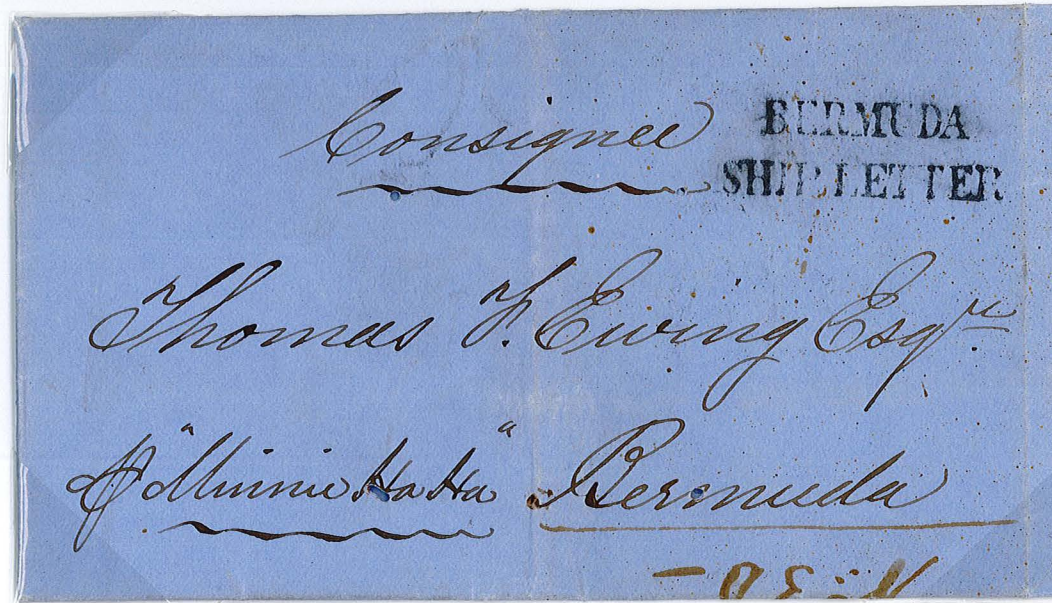 Consignee
BERMUDA
SHIP LETTER
Thomas F. Ewing Esqre
"Minnie Ha Ha"
Bermuda